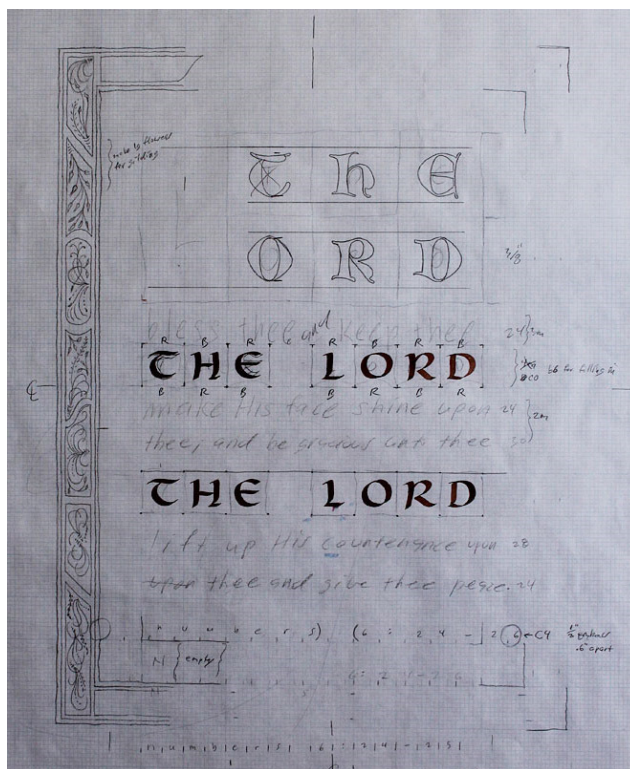 The
ORD
bless thee and keep thee 24
R B R R B R B
THE LORD
B R B B R B R
make His face shine upon 24
thee, and be gracious unto thee 30
THE LORD
lift up His countenance upon 28
upon thee and give thee peace. 24
n u m b e r s) (6 : 2 4 - 2 6
N {empty}
n u m b e r s 6 : 2 4 - 2 5